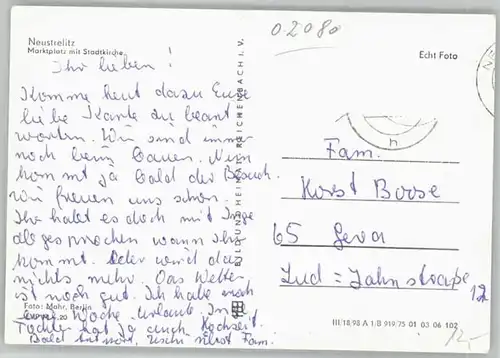 02080
Neustrelitz
Marktplatz mit Stadtkirche
Echt Foto
Ihr lieben!
Komme heut dazu Eure
liebe Karte zu beant
worten. Wir sind immer
noch beim Bauen. Nun
kommt ja bald der Besuch.
wir freuen uns schon.
Ihr habt es doch mit Inge
abgesprochen wann Ihr
kommt. Oder wird das
nichts mehr. Das Wetter
ist noch gut. Ich habe noch
Woche Urlaub. In
Tochter hat ja auch Hochzeit.
Bald Fam.
Foto: Mohr, Berlin
20
BILD UND HEIMAT REICHENBACH I. V.
Fam.
Horst Boose
65 Gera
Lud = Jahnstraße
12
III/18/98 A 1/B 919/75 01 03 06 102